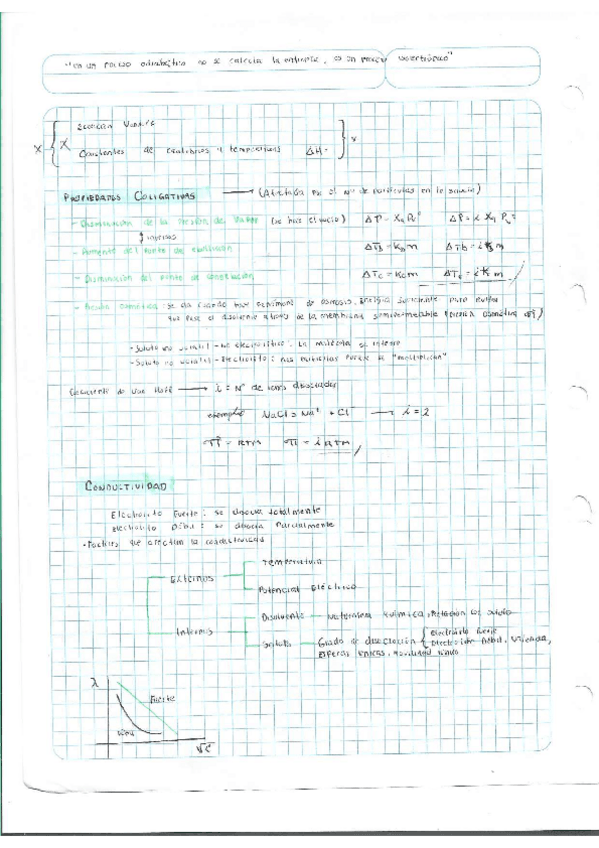 "en un proceso adiabático no se calcula la entropía, es un proceso isoentrópico"
Ecuación Van't Hoff
Constantes de equilibrios y temperaturas ΔH=
PROPIEDADES COLIGATIVAS → (Afectada por el Nº de partículas en la solución)
- Disminución de la Presión de Vapor (se hace el vacío) ΔP = X₂ P₁° ΔP = i X₂ P₁°
inversas
- Aumento del punto de ebullición ΔTb = Kb m ΔTb = i Kb m
- Disminución del punto de congelación ΔTc = Kc m ΔTc = i K m
- Presión osmótica: se da cuando hay fenómeno de osmosis,
que pase el disolvente a través de la membrana semipermeable (presión osmótica π)
- Soluto no volátil - No electrolítico: La molécula
- Soluto no volátil - Electrolito: mis moléculas puede se "multiplican"
de Van't Hoff → i = Nº de iones disociados
ejemplo NaCl = Na⁺ + Cl⁻ → i = 2
π = RTM π = i RTM
CONDUCTIVIDAD
Electrolito Fuerte: se disocia totalmente
Electrolito Débil: se disocia Parcialmente
- Factores que afectan la conductividad
Externos
Temperatura
Potencial Eléctrico
Internos
Disolvente - Naturaleza química, Relación con soluto
Soluto - Grado de disociación { Electrolito fuerte
Electrolito Débil,
λ
Fuerte
√C